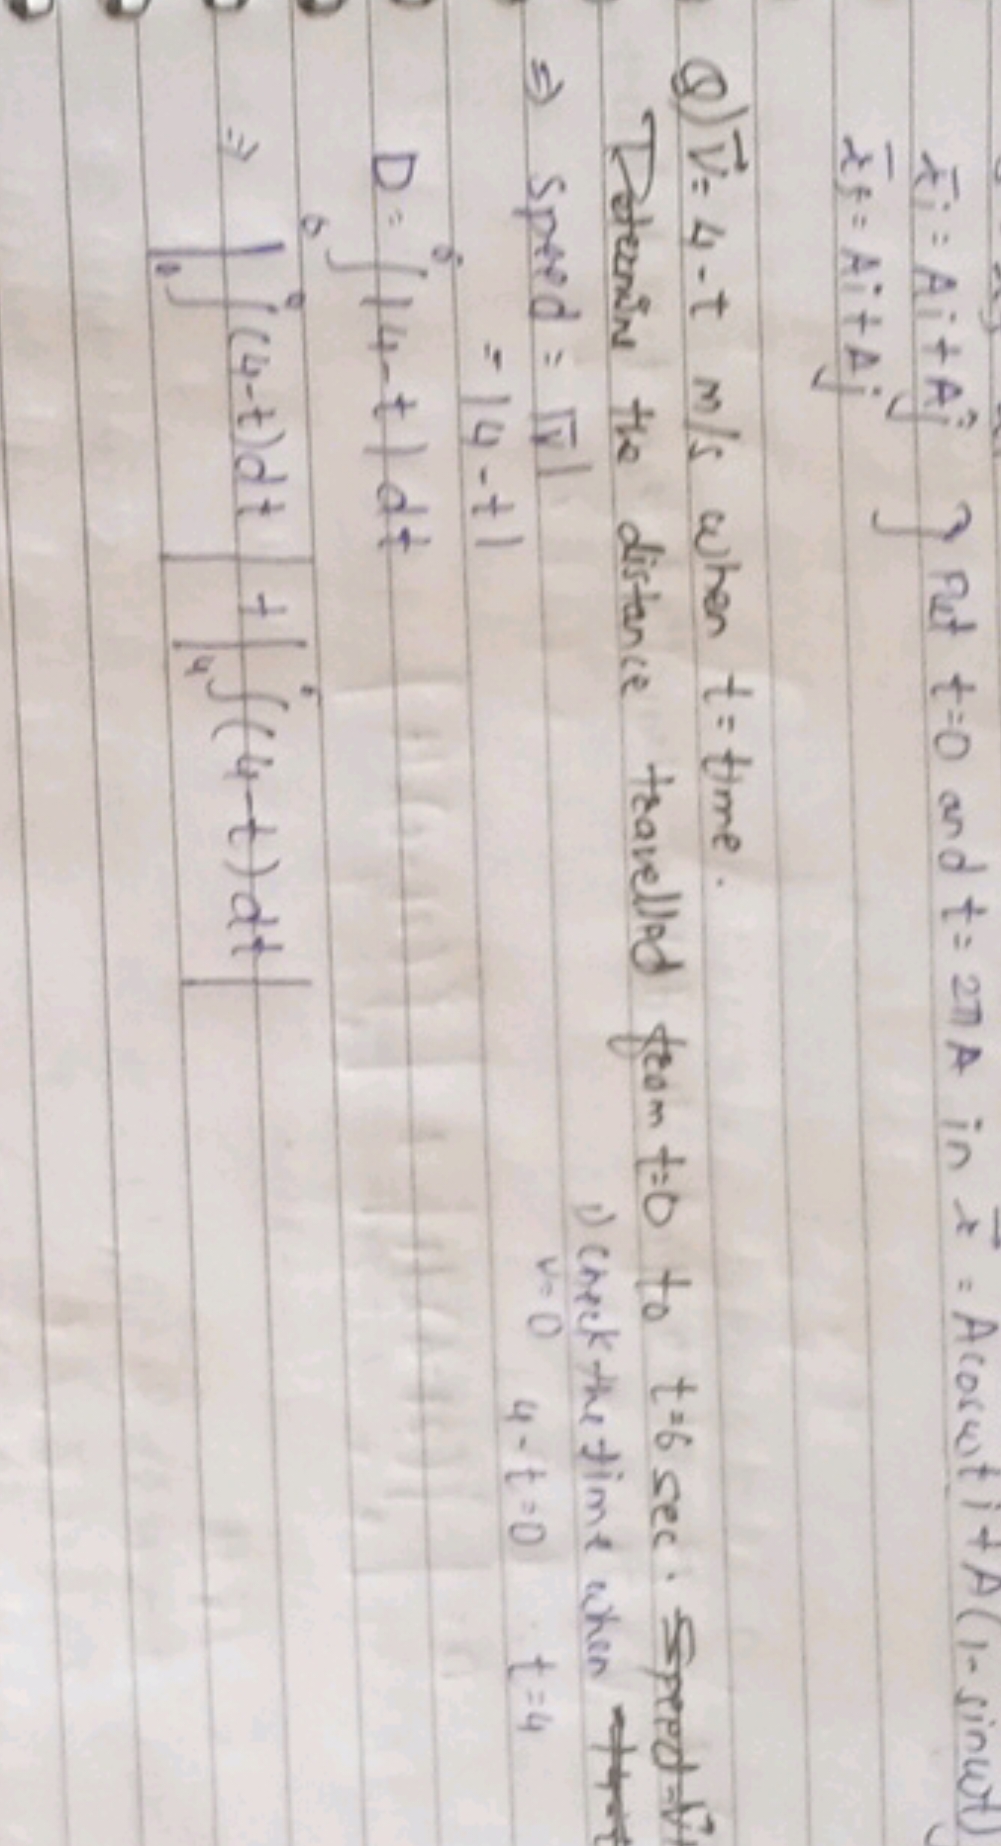 x̄i = Ai + Aĵ } Put t=0 and t = 2πA in x⃗ = Acosωt i + A(1 - sinωt)
x̄f = Ai + Aj
Q) V⃗ = 4 - t m/s when t = time.
Determine the distance travelled from t=0 to t=6 sec.
1) Check the time when
⇒ Speed = |v̄| v=0 4 - t = 0 t = 4
= |4 - t|
D = ∫ |4 - t| dt
⇒ |∫(4-t)dt| + |∫(4-t)dt|